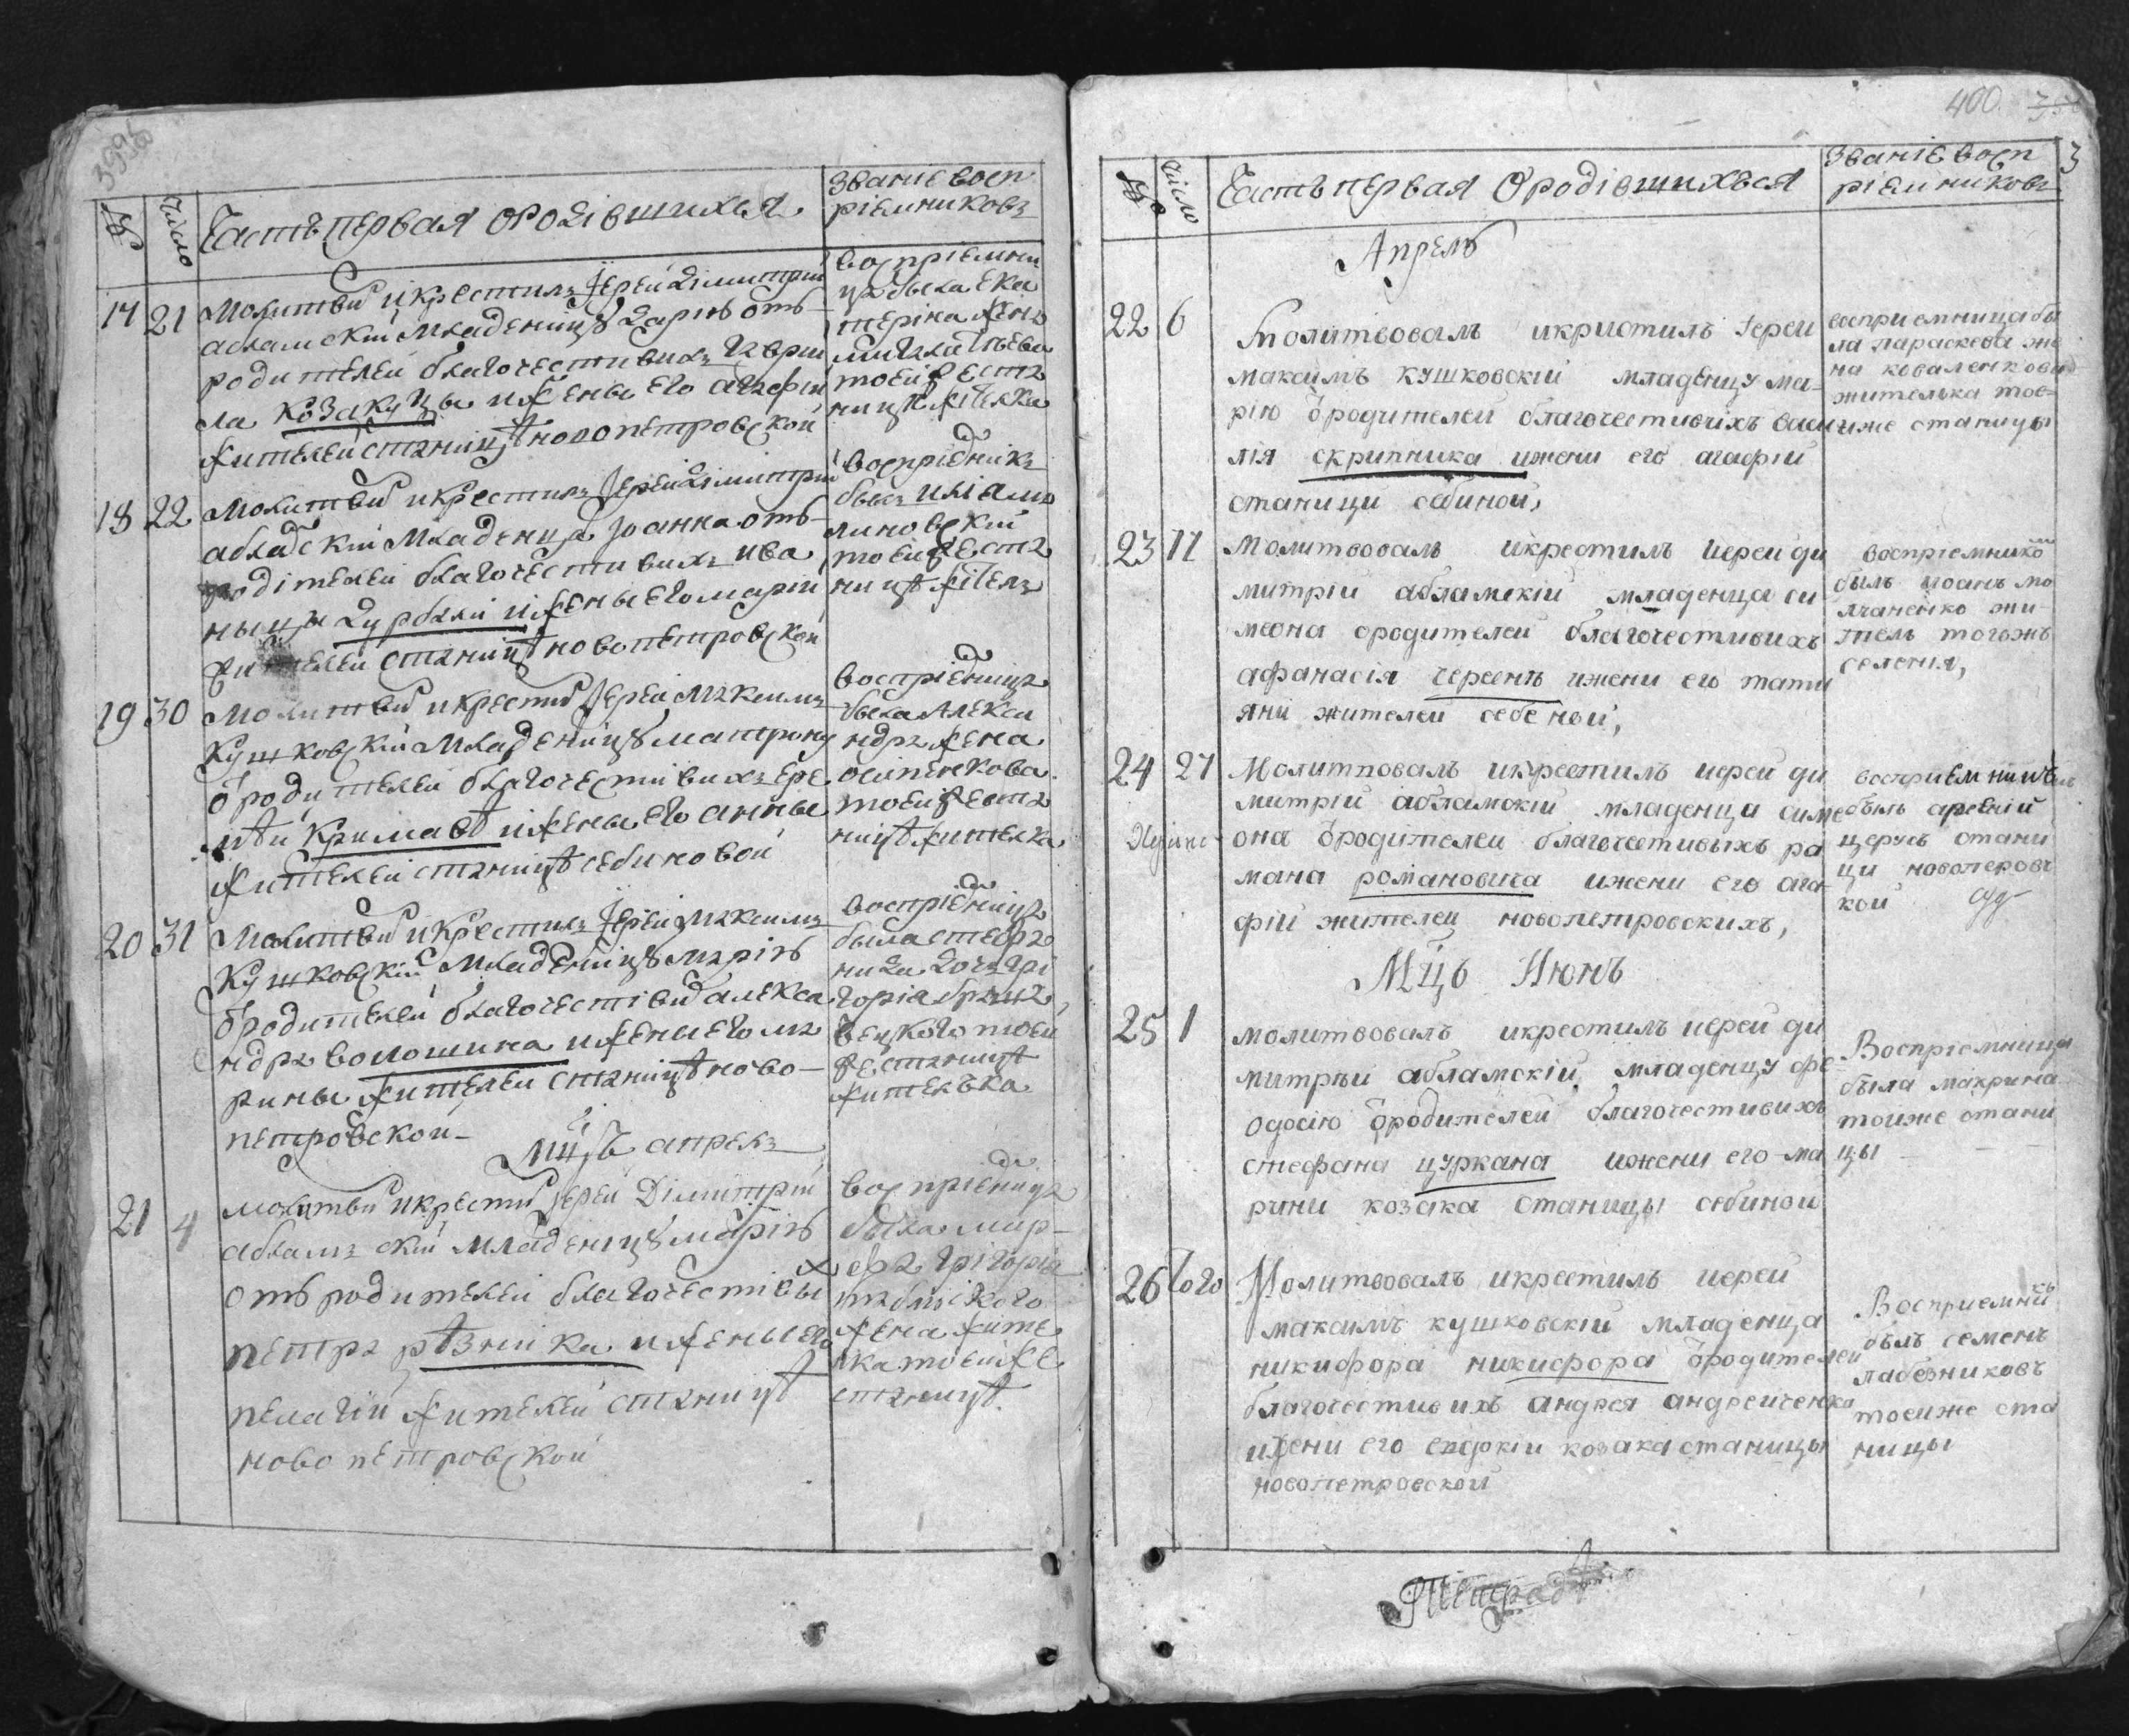 №
число
Часть первая ородівшихся
званіе восп
ріемниковъ
17 21
Молитвов икрестилъ Іерей димитрій
абламскій младеницу дарію отъ
родителей благочестивихъ гаври
ла козакуцы ижены его агафіи
жителей станицѣ новопетровской
воспріемни
ца была ека
терина жена
тоейжеста
ницѣ жителка
18 22
Молитвов икрестилъ Іерей димитрій
абламскій младенца Іоанна отъ
родителей благочестивихъ ива
ныцы дурбали ижены его маріи
жителей станицѣ новопетровской
воспріемникъ
былъ
линовский
тоейжеста
ницѣ жителъ
19 30
Молитвов икрестил Іерей максимъ
Кушковскій младеницу матрону
ѿродителей благочестивихъ ере
мѣи кримавѣ ижены его анны
жителей станицѣ себиновой
воспріемница
была алекса
ндра жена
осипенкова
тоейжеста
ницѣ жителка
20 31
Молитвов икрестилъ Іерей максимъ
Кушковскій младеницу марію
ѿродителей благочестивих алекса
ндра волошина ижены его ма
рины жителей станицѣ ново
петровской
воспріемница
была стефа
нида дочъ гри
горіа
тоей
жестаницѣ
жителъка
мцъ апрель
21 4
молитвов икрестил Іерей Димитрій
абламъскій младеницу марію
отъ родителей благочестивых
петра рѣзника ижены его
пелагіи жителей станицѣ
новопетровской
воспріемница
была мар-
фа григоріа
жена жите
лка тоейже
станицѣ
400
№
число
Часть первая Ородівшихъся
званіе восп
ріемниковъ
3
Апрель
22 6
Молитвовалъ икристилъ Іереи
максимъ кушковскій младенцу ма-
рію ѿродителей благочестивихъ васи
лія скрипника ижени его агафіи
станици себиной,
восприемница бы
ла параскева же
на коваленкова
жителька тое-
иже станицы
23 17
Молитвовалъ икрестилъ иерей ди
митрій абламскій младенца си
меона ородителей благочестивихъ
афанасія черсенъ ижени его тати
яни жителей себеной,
воспріемником
былъ иоанъ мо
лчаненко жи-
тель тогожъ
селения,
24 27
Молитвовалъ икрестилъ иерей ди
митрій абламскій младенца симе
она ѿродителей благочестивыхъ ра
мана романовича ижени его ага-
фіи жителей новопетровскихъ,
восприемникъ
былъ арсеній
церусь стани
ци новопетровс
кой
Мцъ Июнь
25 1
молитвовалъ икрестилъ иерей ди
митрѣи абламскій младенцу фе
одосію ѿродителей благочестивихъ
стефана цуркана ижени его ма
рини козака станицы себиной
Воспріемница
была макрина
тоиже стани
цы
26 того
Молитвовалъ икрестилъ иерей
максимъ кушковскій младенца
никифора никифора ѿродителей
благочестивихъ андрея андреиченка
ижени его евдокіи козака станицы
новопетровской
Восприемникъ
былъ семенъ
лабезниковъ
тоеиже ста
ницы